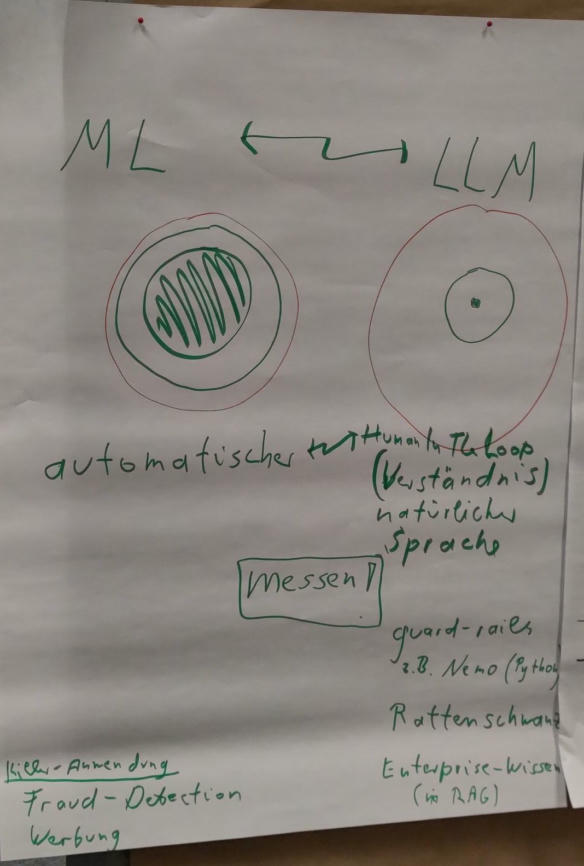 ML
LLM
automatischer
Human In The Loop
(Verständnis)
natürlicher
Sprache
messen!
guard-rails
z.B. Nemo (Python
Rattenschwanz
Enterprise-Wissen
(in RAG)
Killer-Anwendung
Fraud-Detection
Werbung